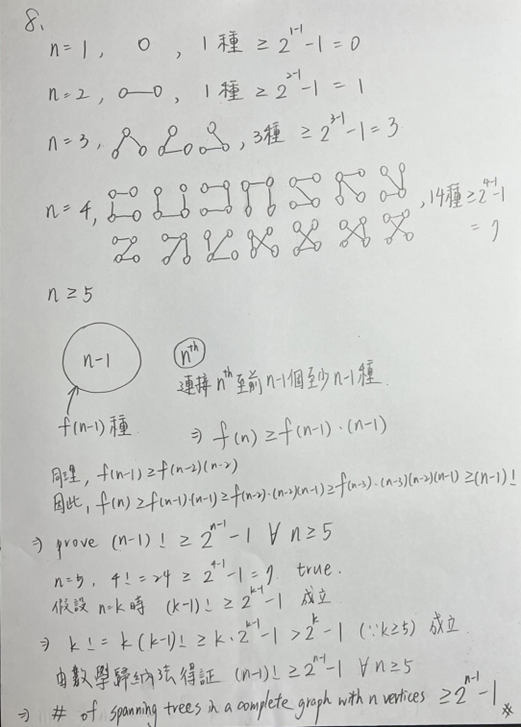 8.
n=1, , 1種 ≥ 2^{1-1}-1 = 0
n=2, , 1種 ≥ 2^{2-1}-1 = 1
n=3, , 3種 ≥ 2^{3-1}-1 = 3
n=4, , 14種 ≥ 2^{4-1}-1
= 7
n ≥ 5
n-1 n^{th}
連接 n^{th} 至前 n-1個至少 n-1 種.
f(n-1) 種 ⇒ f(n) ≥ f(n-1)·(n-1)
同理, f(n-1) ≥ f(n-2)(n-2)
因此, f(n) ≥ f(n-1)·(n-1) ≥ f(n-2)·(n-2)(n-1) ≥ f(n-3)·(n-3)(n-2)(n-1) ≥ (n-1)!
⇒ prove (n-1)! ≥ 2^{n-1}-1 ∀ n≥5
n=5, 4! = 24 ≥ 2^{4-1}-1 = 7. true.
假設 n=k 時 (k-1)! ≥ 2^{k-1}-1 成立
⇒ k! = k(k-1)! ≥ k·2^{k-1}-1 > 2^{k}-1 (∵k≥5) 成立
由數學歸納法得証 (n-1)! ≥ 2^{n-1}-1 ∀ n≥5
⇒ # of spanning trees in a complete graph with n vertices ≥ 2^{n-1}-1 ※